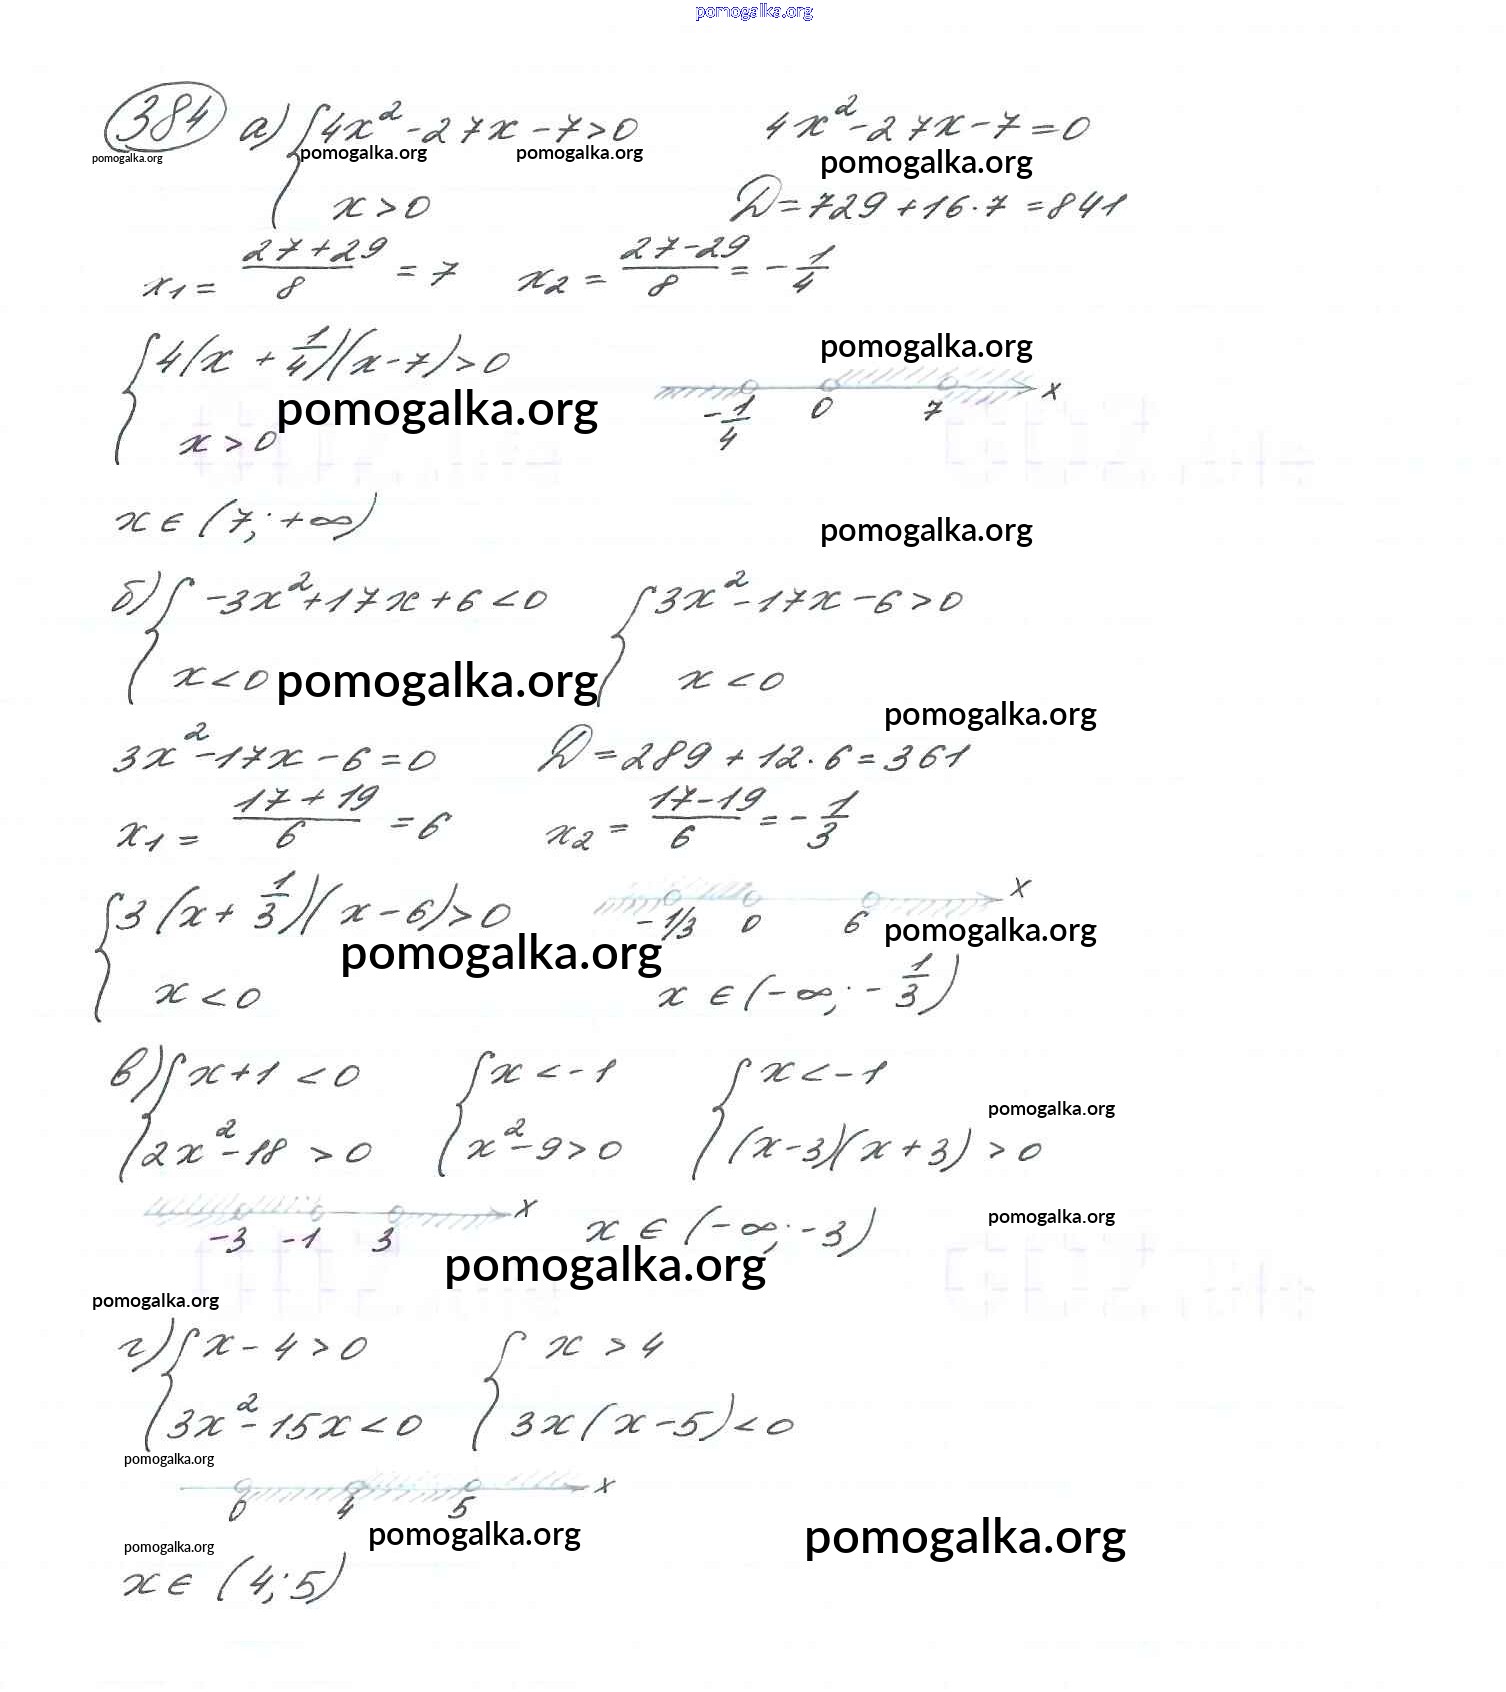 pomogalka.org
384 а) { 4x² - 27x - 7 > 0    4x² - 27x - 7 = 0
pomogalka.org pomogalka.org pomogalka.org pomogalka.org
x > 0    D = 729 + 16·7 = 841
x₁ = (27+29)/8 = 7    x₂ = (27-29)/8 = -1/4
{ 4(x + 1/4)(x - 7) > 0
pomogalka.org
x
-1/4 0 7
pomogalka.org
x > 0
x ∈ (7; +∞)
pomogalka.org
б) { -3x² + 17x + 6 < 0    { 3x² - 17x - 6 > 0
x < 0    x < 0
pomogalka.org
pomogalka.org
3x² - 17x - 6 = 0    D = 289 + 12·6 = 361
x₁ = (17+19)/6 = 6    x₂ = (17-19)/6 = -1/3
{ 3(x + 1/3)(x - 6) > 0
x
-1/3 0 6
pomogalka.org
pomogalka.org
x < 0    x ∈ (-∞; -1/3)
в) { x + 1 < 0    { x < -1    { x < -1
pomogalka.org
2x² - 18 > 0    x² - 9 > 0    (x - 3)(x + 3) > 0
x
-3 -1 3    x ∈ (-∞; -3)
pomogalka.org
pomogalka.org
pomogalka.org
г) { x - 4 > 0    { x > 4
3x² - 15x < 0    3x(x - 5) < 0
pomogalka.org
x
0 4 5
pomogalka.org pomogalka.org
pomogalka.org
x ∈ (4; 5)